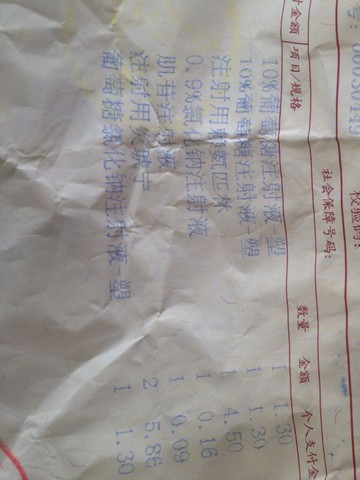 校验码:
社会保障号码:
付金额 项目/规格 数量 金额 个人支付金
10%葡萄糖注射液-塑 1 1.30
10%葡萄糖注射液-塑 1 1.30
注射用赖氨匹林 1 4.50
0.9%氯化钠注射液 1 0.16
肌苷注射液 1 0.09
注射用炎琥宁 2 5.86
葡萄糖氯化钠注射液-塑 1 1.30